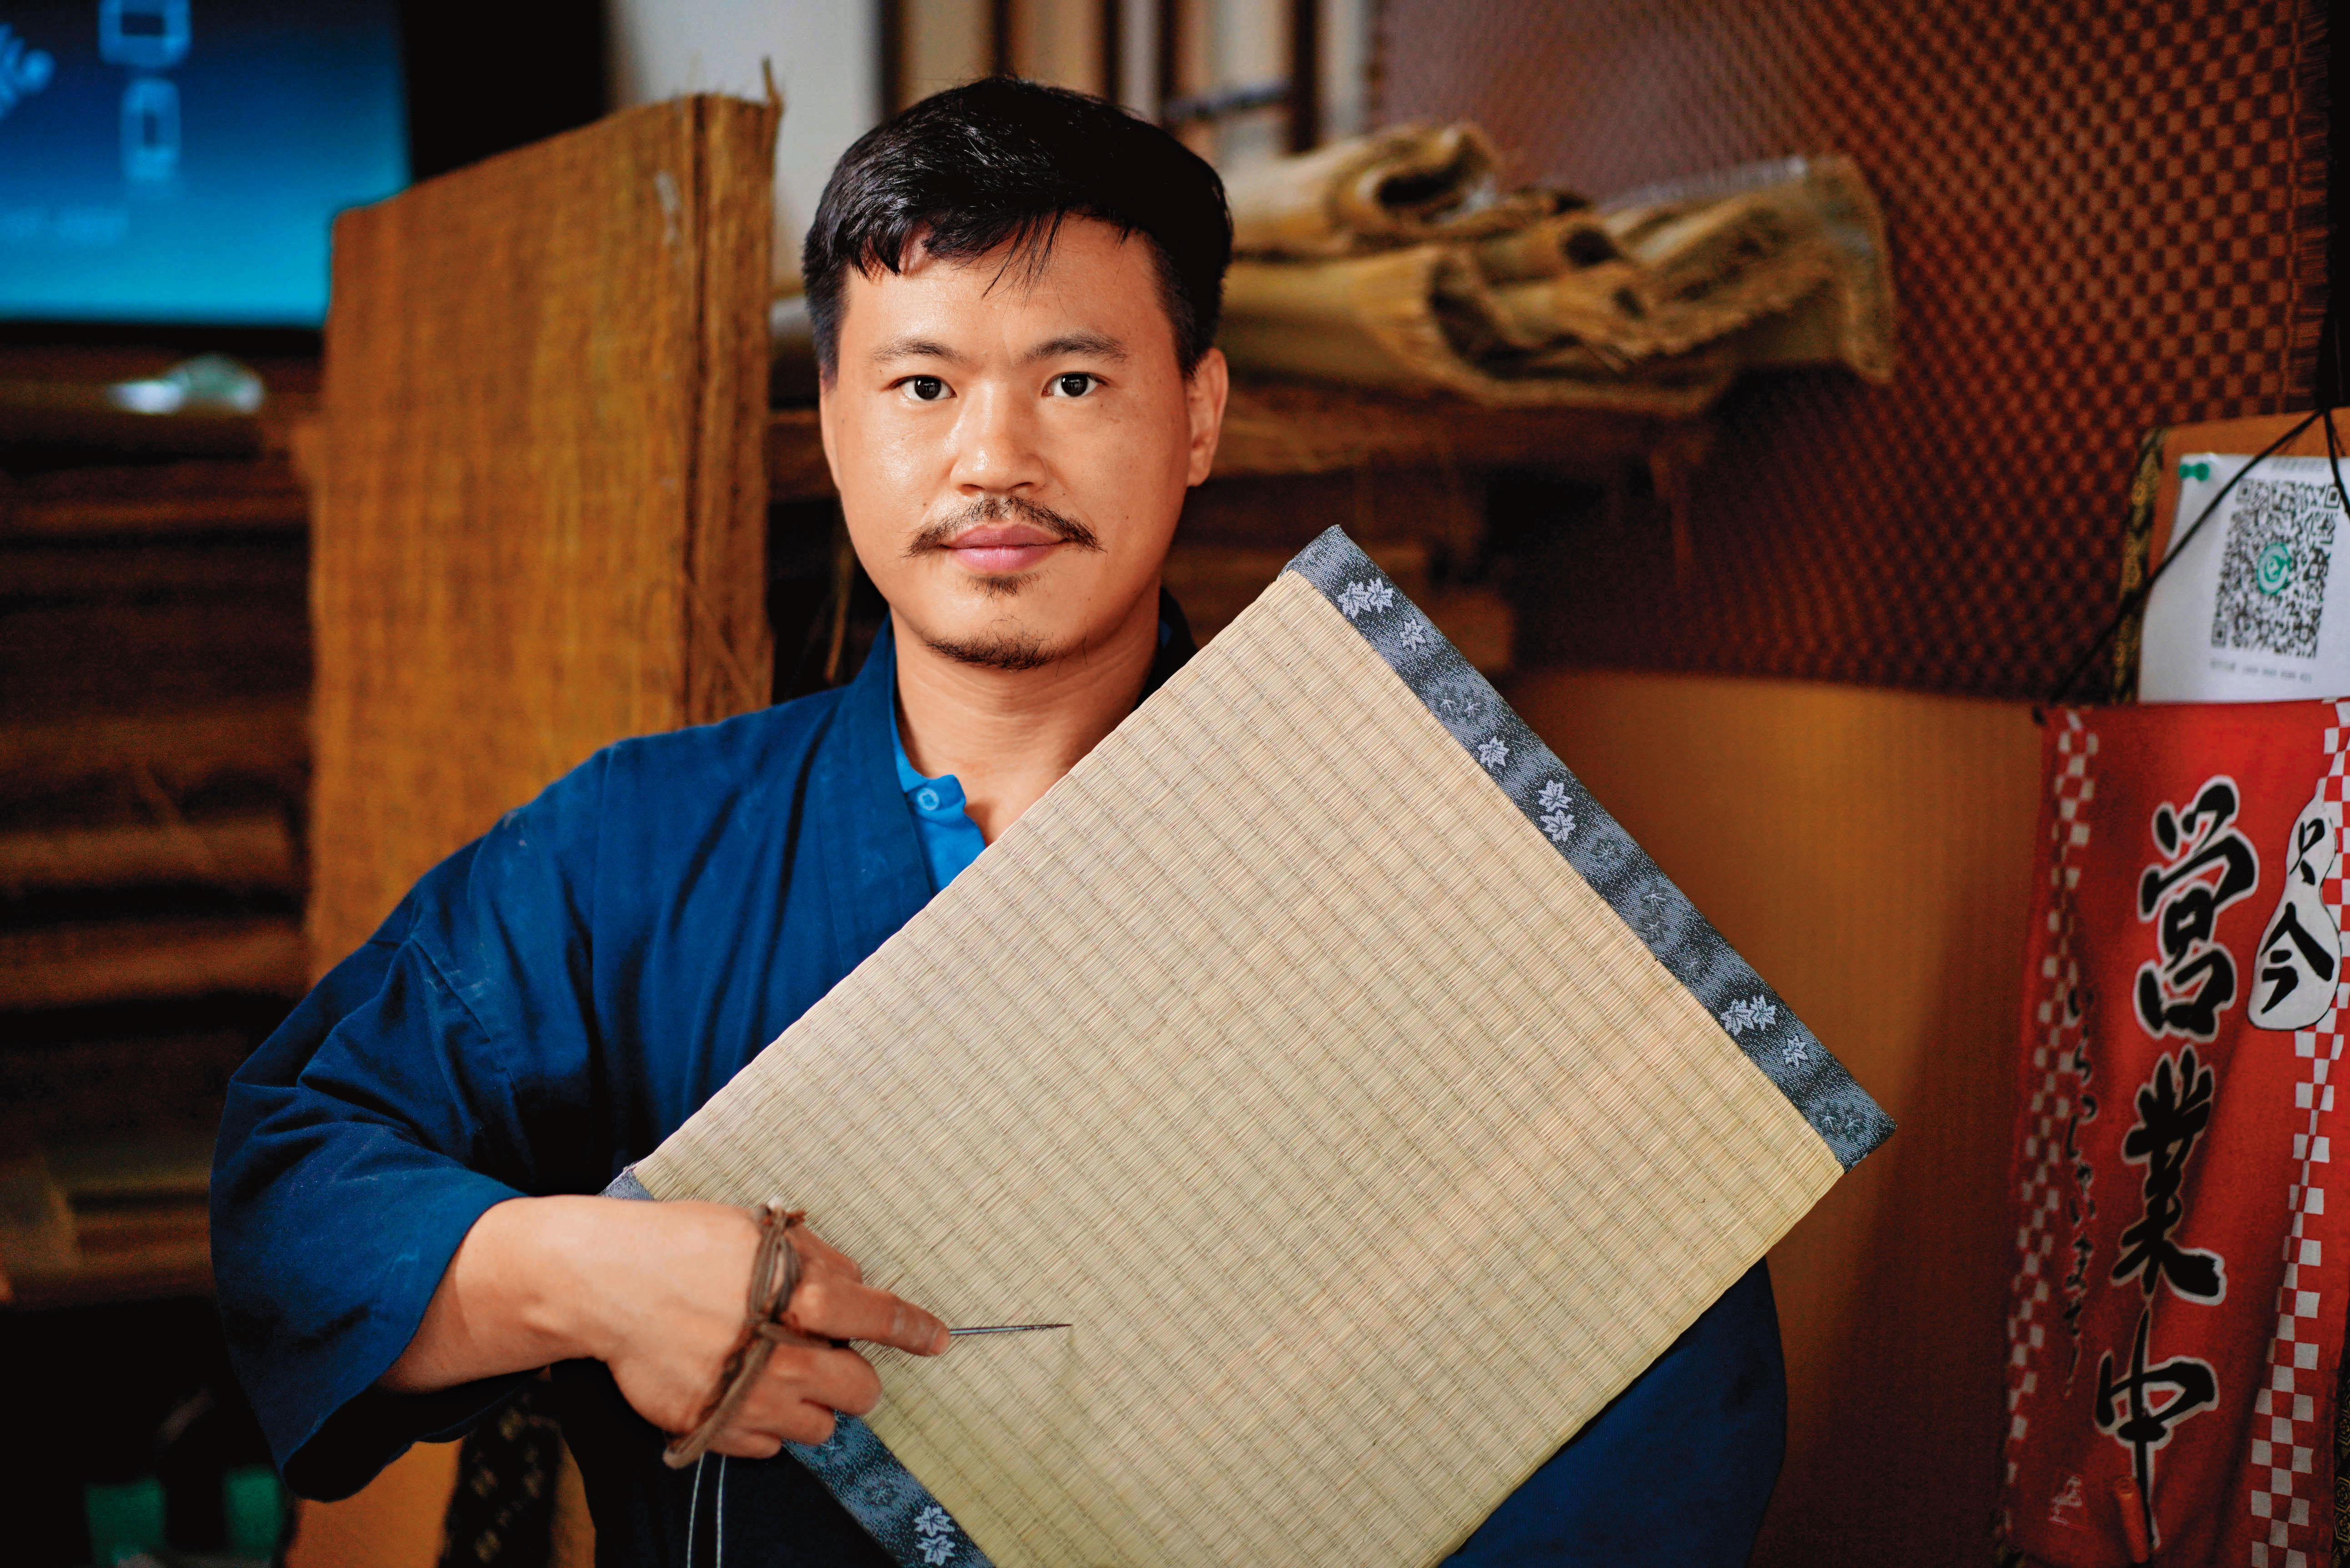 只今
営業中
いらっしゃいませー